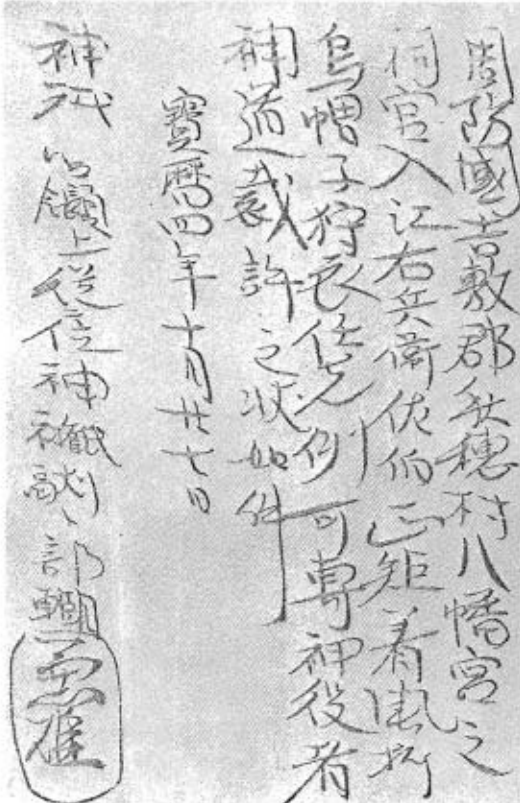 周防國吉敷郡秋穂村八幡宮之
祠官入江右兵衛佐伯正矩着風折
烏帽子狩衣任先例可専神役者
神道裁許之状如件
寶暦四年十月廿七日
神祇 領上従位神祇副 部